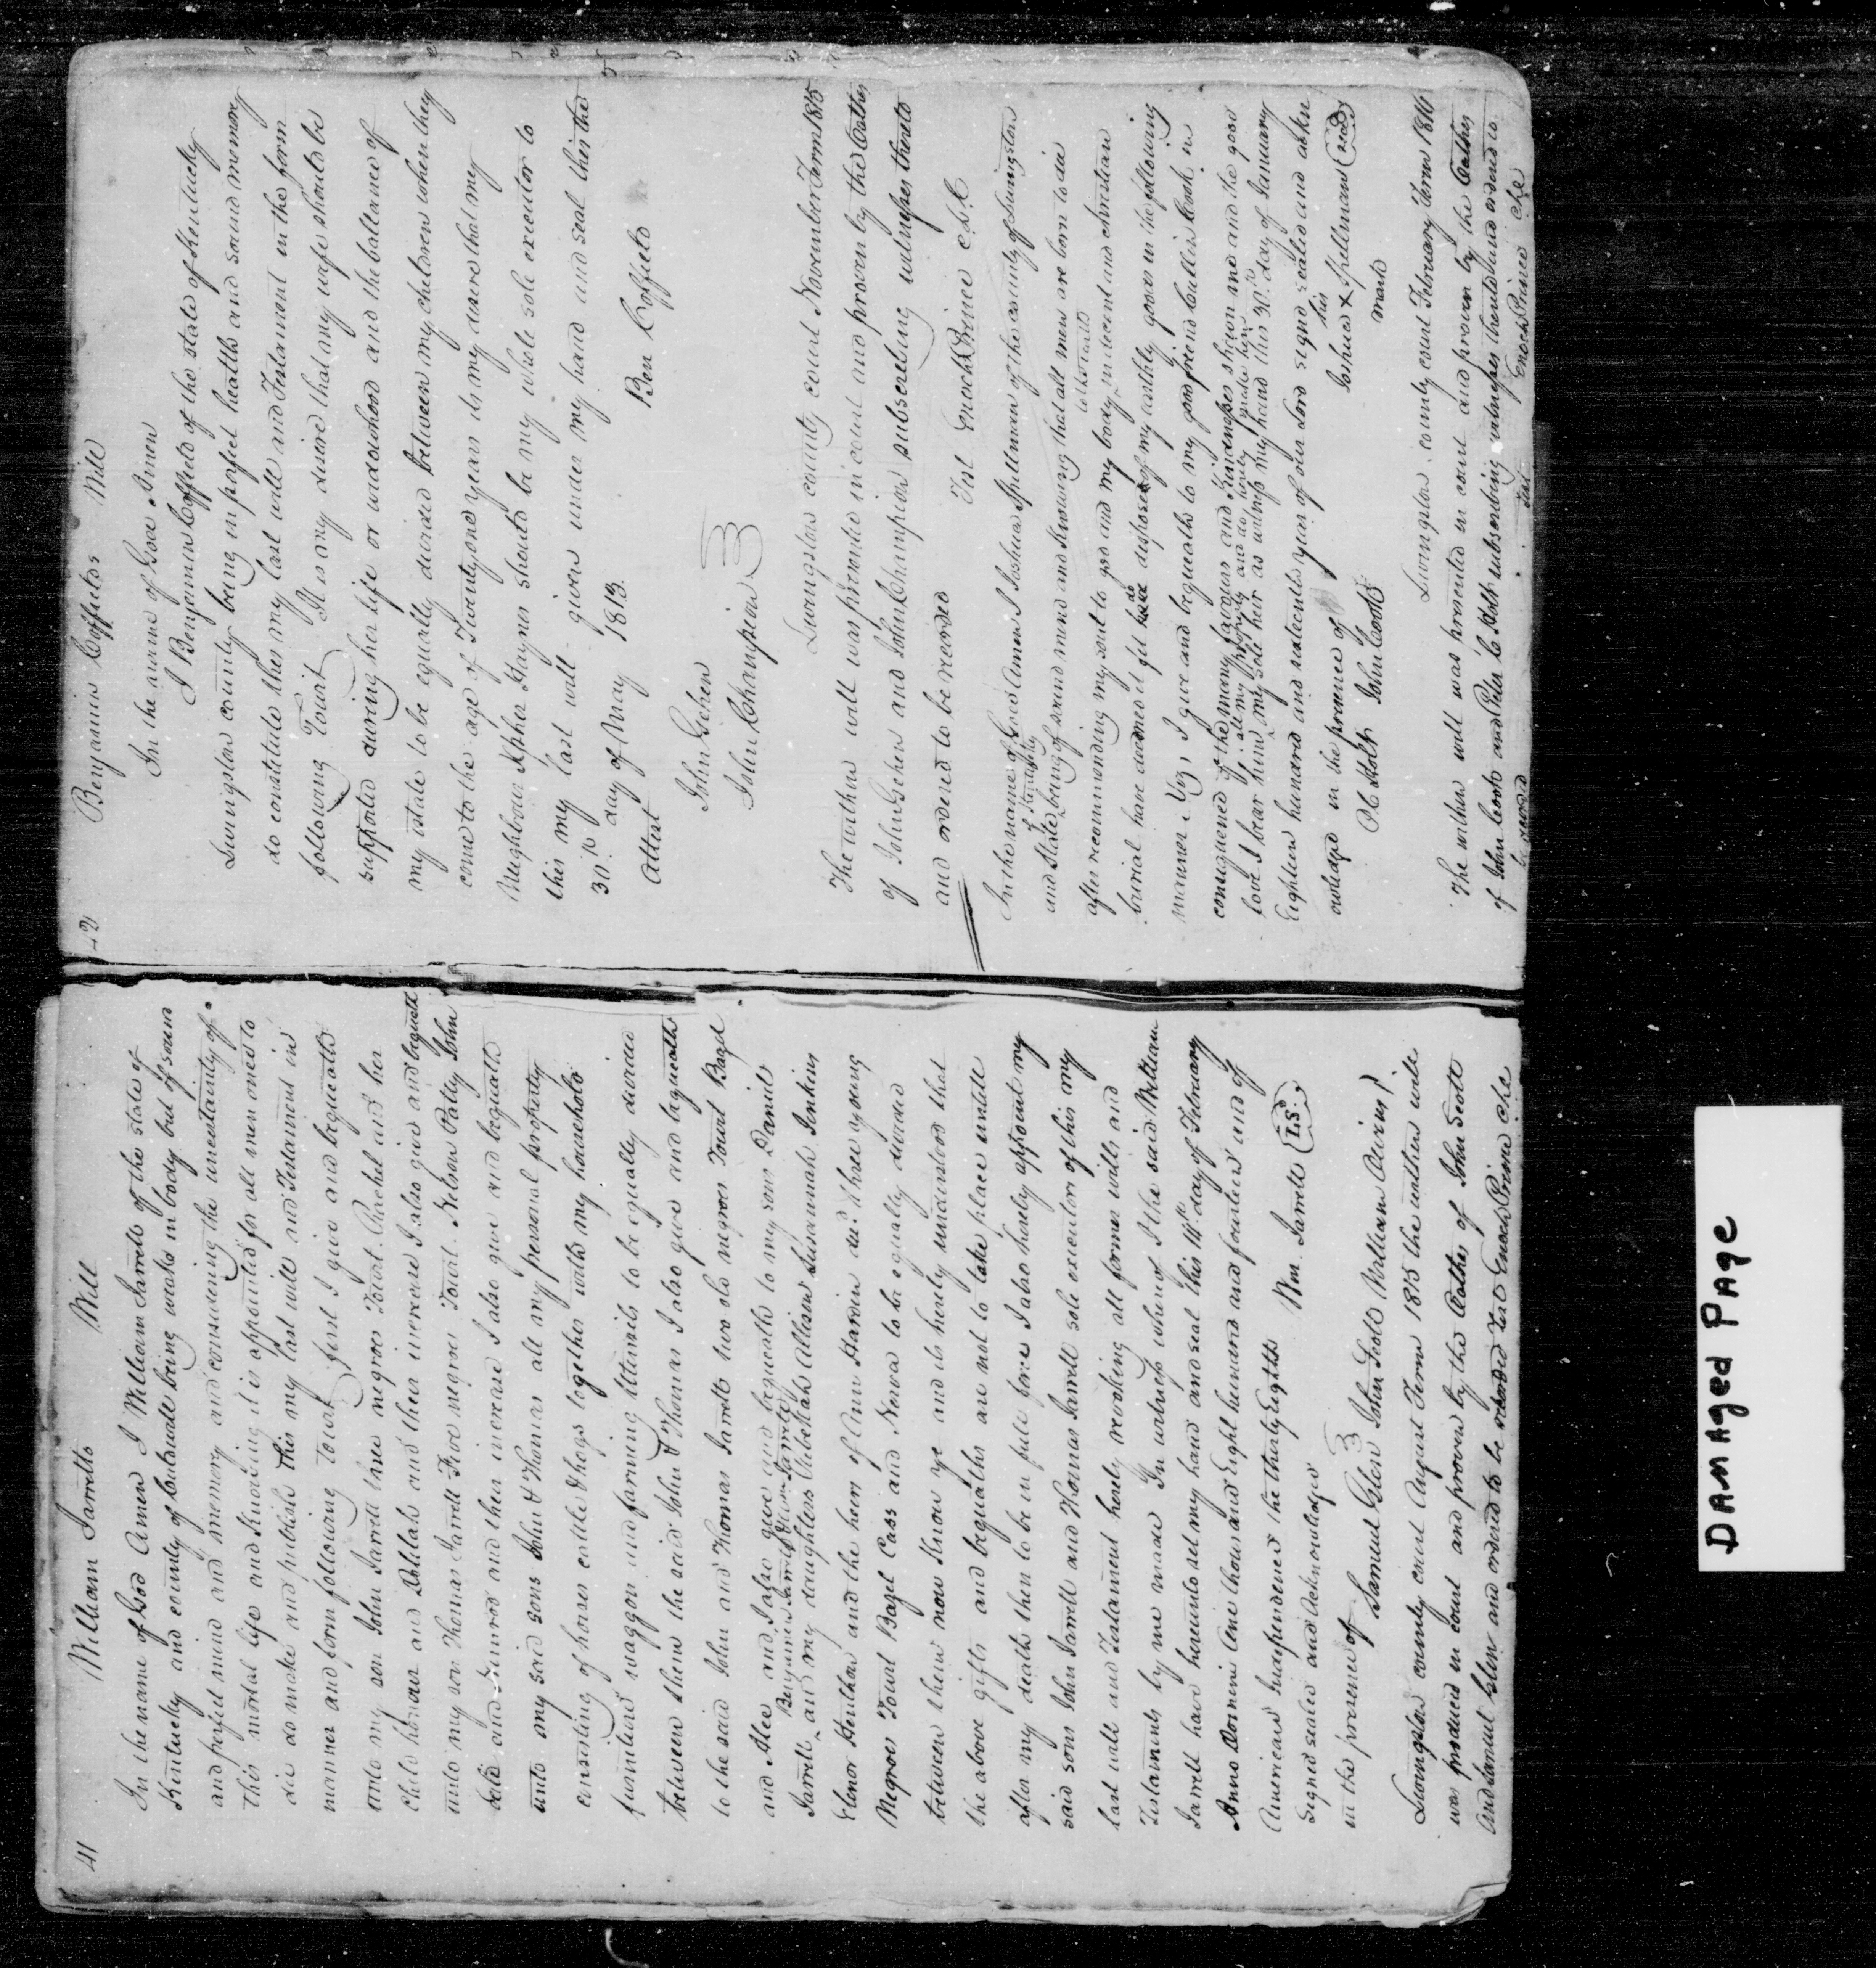 41 William Jarretts Will
In the name of God Amen I William Jarrett of the state of
Kentucky and county of being weak in body but of sound
and perfect mind and memory and considering the uncertainty of
this mortal life and knowing it is appointed for all men once to
die do make and publish this my last will and Testament in
manner and form following Towit, first I give and bequeath
unto my son John Jarrett three negroes Towit Rachel and her
child and Delilah and their increase I also give and bequeath
unto my son Thomas Jarrett Five negroes Towit. Nelson Patty John
and and their increase I also give and bequeath
unto my said sons John & Thomas all my personal property
consisting of horses cattle & hogs together with my household
furniture waggon and farming utensils to be equally divided
between them the said John & Thomas I also give and bequeath
to the said John and Thomas Jarrett two old negroes Towit Bazel
and Alee and I also give and bequeath to my sons Daniel
Benjamin Jarrett Jarrett
Jarrett and my daughters Allison Susannah Jenkins
Elenor and the heirs of Ann Hardin dec'd three young
Negroes Towit Bazel Cass and to be equally divided
between them now know ye and it is hereby understood that
the above gifts and bequeaths are not to take place untill
after my death then to be in full force I also hereby appoint my
said sons John Jarrett and Thomas Jarrett sole executors of this my
last will and Testament hereby revoking all former wills and
Testaments by me made In witness whereof I the said William
Jarrett have hereunto set my hand and seal this 14th day of February
Anno Domini One thousand Eight hundred and fourteen and of
American Independence the thirty Eighth
Signed sealed and acknowledged Wm. Jarrett L.S.
in the presence of
Samuel Glen John Scott William
Livingston county court August Term 1815 the within will
was produced in court and proven by the Oathes of John Scott
and Samuel Glen and ordered to be recorded Test Enoch Prince clk
42 Benjamin Coffields Will
In the name of God. Amen
I Benjamin Coffield of the state of Kentucky
Livingston county being in perfect health and sound memory
do constitute this my last will and Testament in the form
following Towit It is my desire that my wife should be
supported during her life or widowhood and the ballance of
my estate to be equally divided between my children when they
come to the age of Twentyone years its my desire that my
Neighbour Haynes should be my whole sole executor to
this my last will given under my hand and seal this the
30th day of May 1813.
Attest Ben Coffield
John Gehen
John Champion
Livingston county court November Term 1815
The within will was presented in court and proven by the Oathes
of John Gehen and John Champion subscribing witnesses thereto
and ordered to be recorded
Test Enoch Prince c.l.c
In the name of God Amen I Joshua Spellman of the county of Livingston
of Kentucky
and State being of sound mind and knowing that all men are born to die
to the earth
after recommending my soul to god and my body, in decent and christian
burial have deemed it fit to dispose of my earthly goods in the following
manner Viz, I give and bequeath to my good friend Cook in
consequence of the many favours and kindnesses shewn me and the good
all my property and do hereby make him
love I bear him my sole heir as witness my hand this 30th day of January
Eighteen hundred and sixteenth year of our Lord signed sealed and ackn
owledged in the presence of his
Joshua X Spellman seal
mark
Holt John Cook
Livingston county court February Term 1816
The within will was presented in court and proven by the Oathes
of John Cook and Peter C Holt subscribing witnesses thereto and ordered to
be recorded Test Enoch Prince clk
Damaged Page